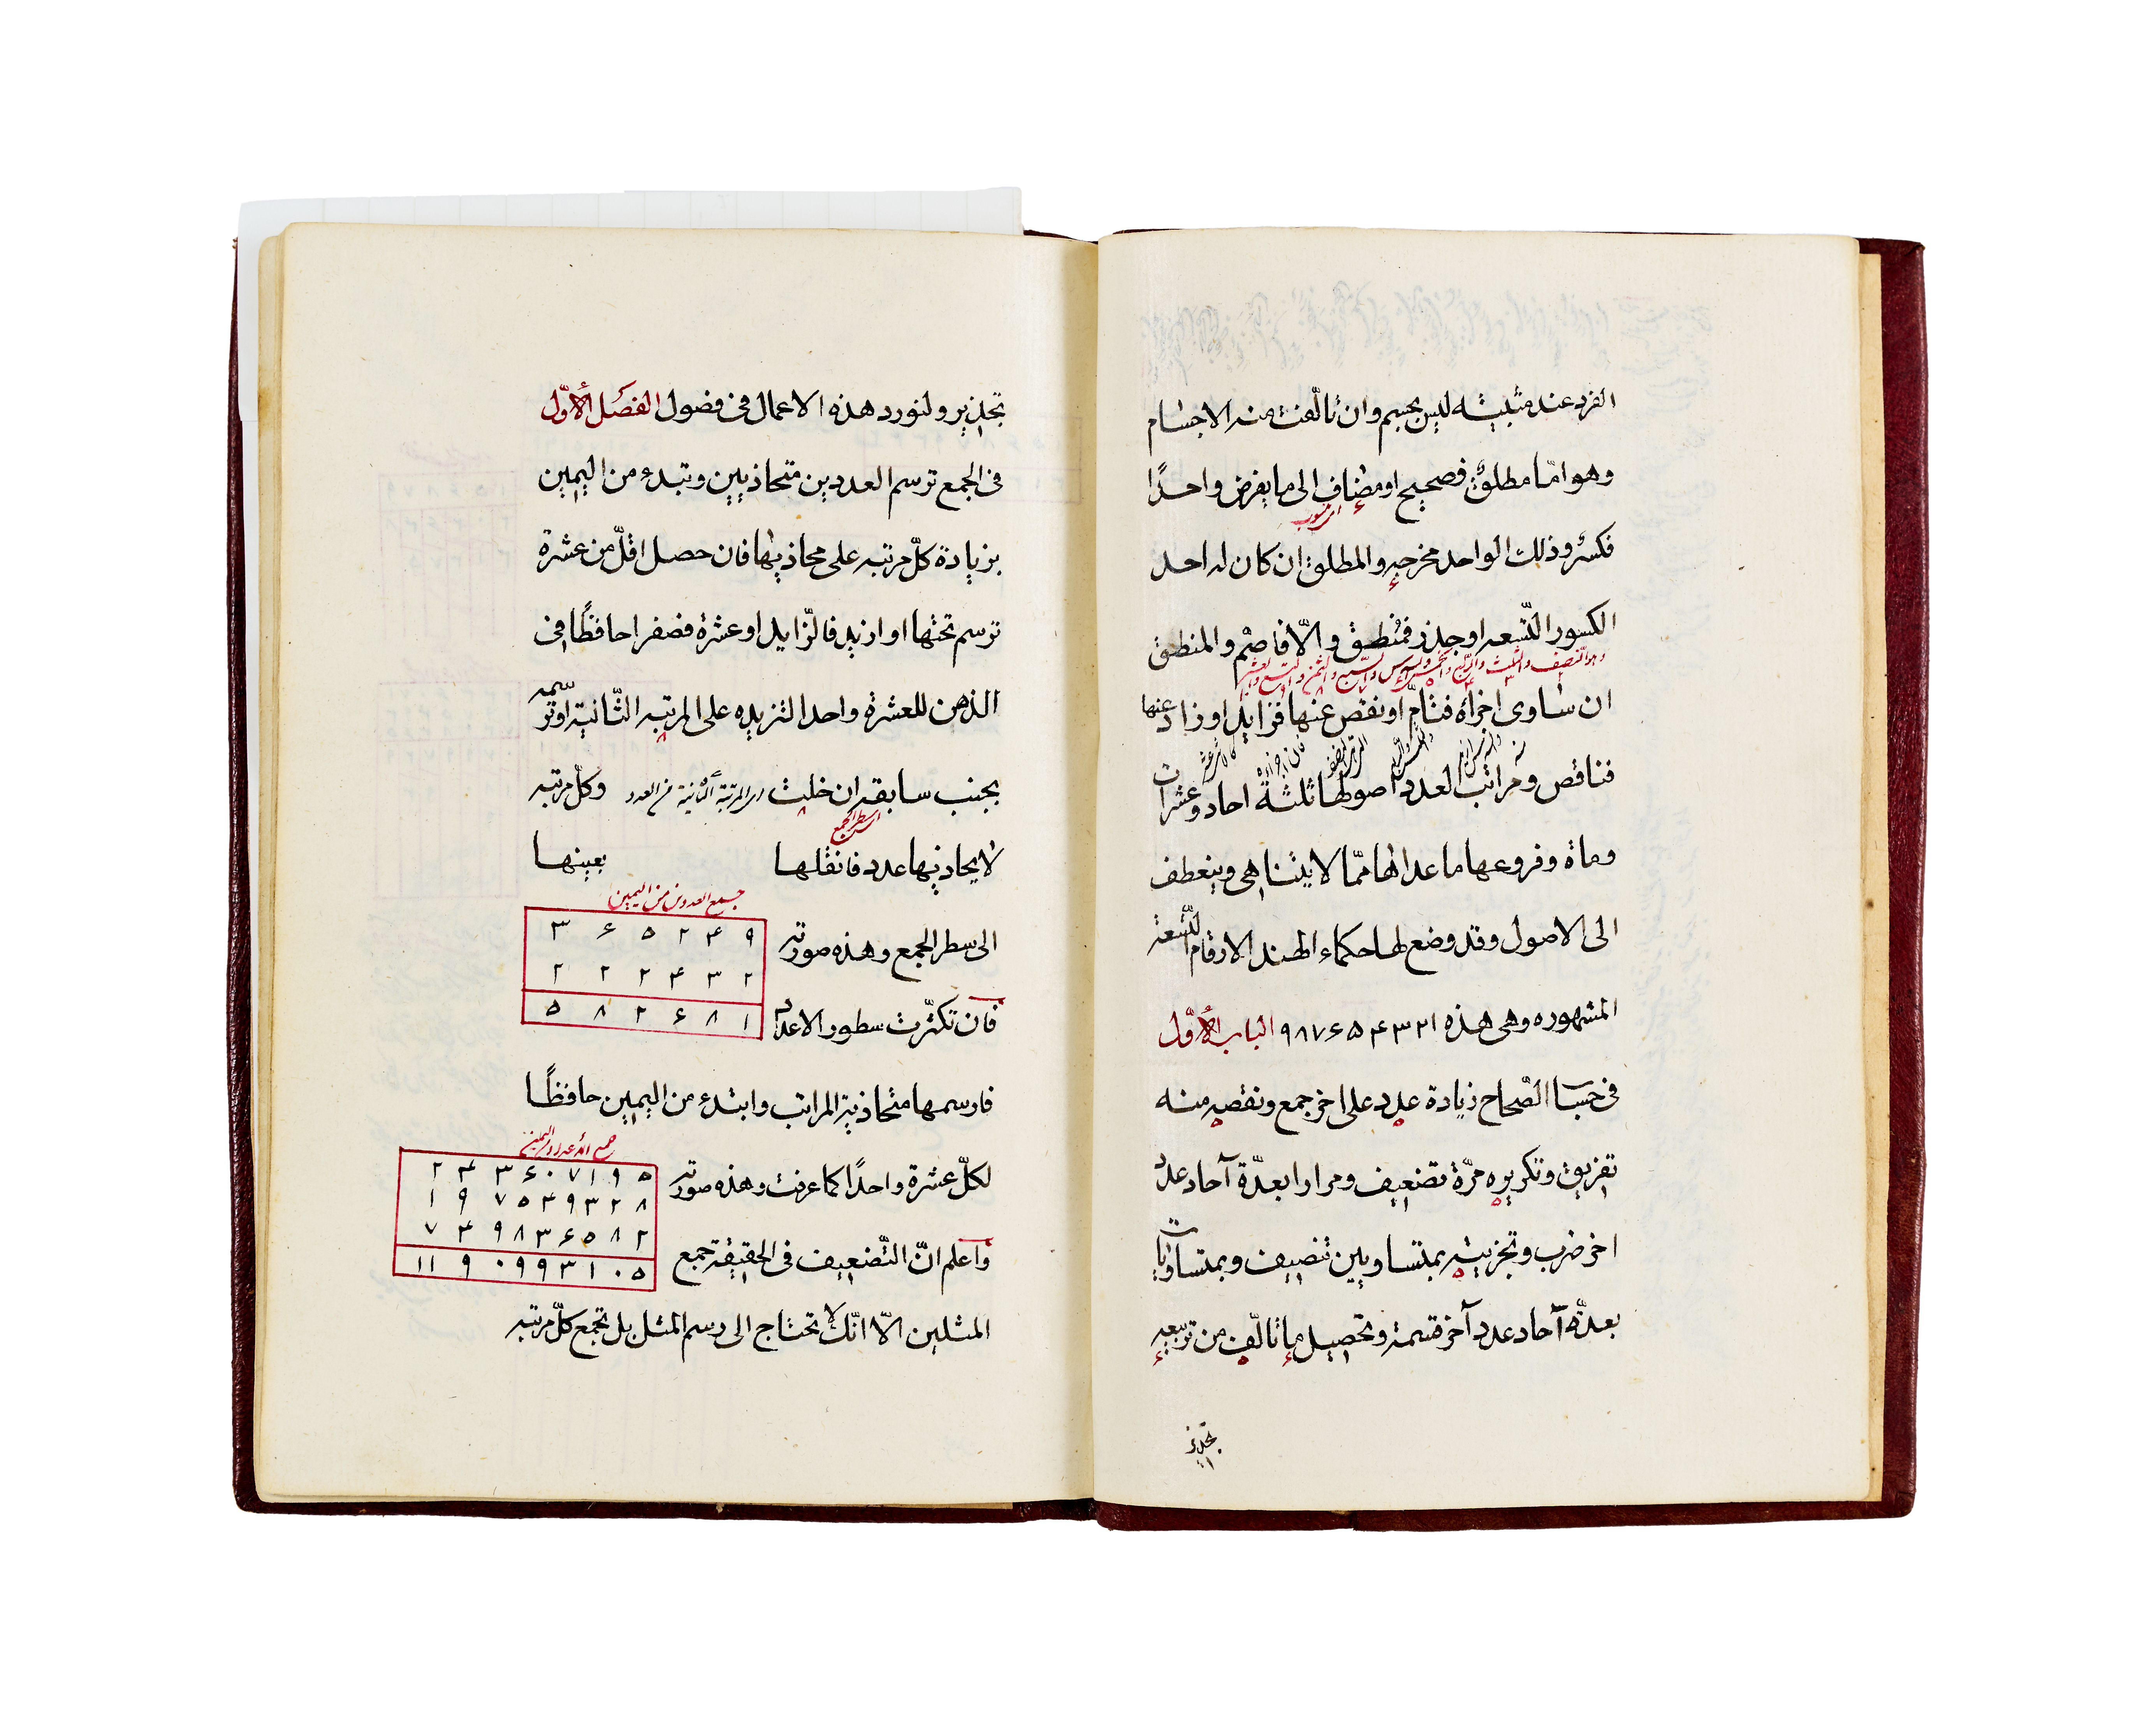 الفرد عند مثبتيه ليس بجسم وان تالفت منه الاجسام
وهو امّا مطلقٌ فصحيح او مضاف الى ما يفرض واحدًا
اى منسوب
فكسرٌ وذلك الواحد مخرجه والمطلق ان كان له احد
الكسور التّسعه او جذر فمُنطق والّا فاصمّ والمنطق
وهو النّصف والثلث والرّبع والخمس والسدس والسّبع والثمن والتسع والعشر
ان ساوى اجزاءه فتامّ او نقص عنها فزايد او زاد عنها
فناقص ومراتب العدد اصولها ثلثة احاد وعشرات
وماة وفروعها ما عداها ممّا لا يتناهى وينعطف
الى الاصول وقد وضع لها حكماء الهند الارقام التّسعة
المشهوره وهى هذه ۱ ۲ ۳ ۴ ۵ ۶ ۷ ۸ ۹ الباب الأوّل
فى حساب الصّحاح زيادة عدد على اخر جمع ونقصه منه
تفريق وتكريره مرّة تضعيف ومرارا بعدّة آحاد عدد
اخر ضرب وتجزيته بمتساويين تنصيف وبمتساويات
بعدّة آحاد عدد آخر قسمة وتحصيل ما تالّف من تربيعه
تجذير
تجذير ولنورد هذه الاعمال فى فصول الفصل الأوّل
فى الجمع ترسم العددين متحاذيين وتبدء من اليمين
بزيادة كلّ مرتبه على محاذيها فان حصل اقلّ من عشرة
ترسم تحتها او ازيد فالزّايد او عشرة فصفرا حافظًا فى
الذهن للعشرة واحدا لتزيده على المرتبه الثّانية او ترسمه
بجنب سابقه ان خلت اى المرتبة الثانية من العدد وكلّ مرتبه
اى سطر الجمع
لا يحاذيها عدد فانقلها بعينها
جمع العددين من اليمين
الى سطر الجمع وهذه صورته
۳ ۶ ۵ ۲ ۴ ۹
۲ ۲ ۲ ۴ ۳ ۲
۵ ۸ ۲ ۶ ۸ ۱
فان تكثّرت سطور الاعداد
فارسمها متحاذية المراتب وابتدء من اليمين حافظًا
جمع الأعداد من اليمين
لكلّ عشرة واحدًا كما عرفت وهذه صورته
۲ ۴ ۳ ۶ ۰ ۷ ۱ ۹ ۵
۱ ۹ ۷ ۵ ۴ ۹ ۳ ۲ ۸
۷ ۴ ۹ ۸ ۳ ۶ ۵ ۸ ۲
۱۱ ۹ ۰ ۹ ۹ ۳ ۱ ۰ ۵
واعلم انّ التّضعيف فى الحقيقة جمع
المثلين الّا انّك لا تحتاج الى رسم المثل بل تجمع كلّ مرتبه